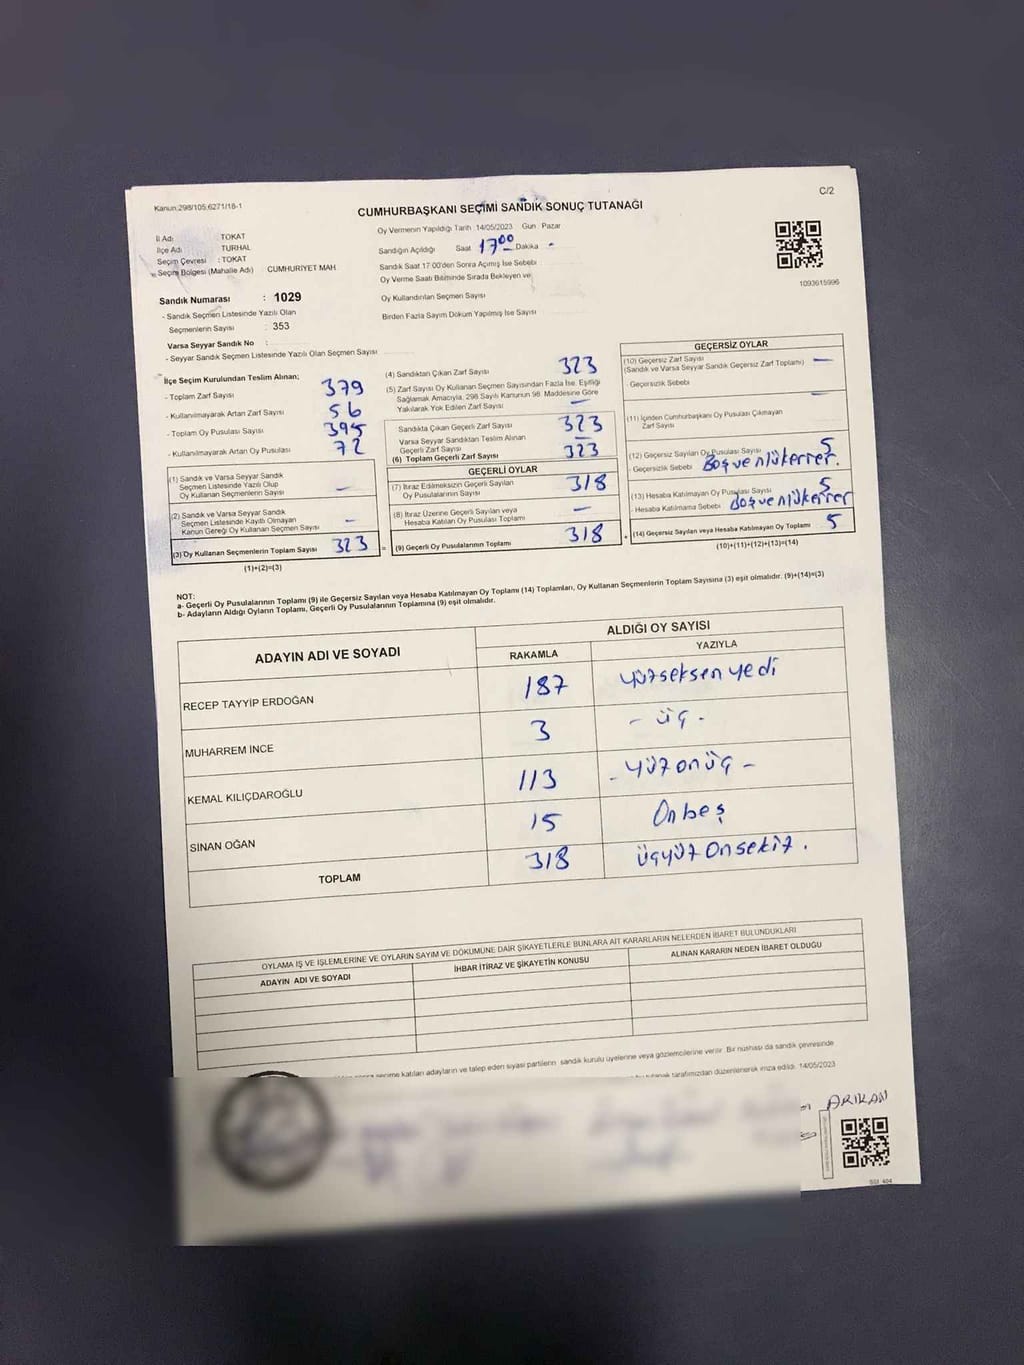 Kanun:298/105.6271/18-1
C/2
CUMHURBAŞKANI SEÇİMİ SANDIK SONUÇ TUTANAĞI
İl Adı : TOKAT
İlçe Adı : TURHAL
Seçim Çevresi : TOKAT
Seçim Bölgesi (Mahalle Adı) CUMHURİYET MAH
Sandık Numarası : 1029
- Sandık Seçmen Listesinde Yazılı Olan
Seçmenlerin Sayısı : 353
Varsa Seyyar Sandık No :
- Seyyar Sandık Seçmen Listesinde Yazılı Olan Seçmen Sayısı
Oy Vermenin Yapıldığı Tarih 14/05/2023 Gün: Pazar
Sandığın Açıldığı Saat 17 00 Dakika -
Sandık Saat 17:00'den Sonra Açımış İse Sebebi
Oy Verme Saati Bitiminde Sırada Bekleyen ve
Oy Kullandırılan Seçmen Sayısı
Birden Fazla Sayım Döküm Yapılmış İse Sayısı
1093615996
İlçe Seçim Kurulundan Teslim Alınan;
- Toplam Zarf Sayısı 379
- Kullanılmayarak Artan Zarf Sayısı 56
- Toplam Oy Pusulası Sayısı 395
- Kullanılmayarak Artan Oy Pusulası 72
(1) Sandık ve Varsa Seyyar Sandık
Seçmen Listesinde Yazılı Olup
Oy Kullanan Seçmenlerin Sayısı —
(2) Sandık ve Varsa Seyyar Sandık
Seçmen Listesinde Kayıtlı Olmayan
Kanun Gereği Oy Kullanan Seçmen Sayısı —
(3) Oy Kullanan Seçmenlerin Toplam Sayısı 323
(1)+(2)=(3)
(4) Sandıktan Çıkan Zarf Sayısı 323
(5) Zarf Sayısı Oy Kullanan Seçmen Sayısından Fazla İse, Eşitliği
Sağlamak Amacıyla, 298 Sayılı Kanunun 98. Maddesine Göre
Yakılarak Yok Edilen Zarf Sayısı —
Sandıkta Çıkan Geçerli Zarf Sayısı 323
Varsa Seyyar Sandıktan Teslim Alınan
Geçerli Zarf Sayısı —
(6) Toplam Geçerli Zarf Sayısı 323
GEÇERLİ OYLAR
(7) İtiraz Edilmeksizin Geçerli Sayılan
Oy Pusulalarının Sayısı 318
(8) İtiraz Üzerine Geçerli Sayılan veya
Hesaba Katılan Oy Pusulası Toplamı —
= (9) Geçerli Oy Pusulalarının Toplamı 318
GEÇERSİZ OYLAR
(10) Geçersiz Zarf Sayısı —
(Sandık ve Varsa Seyyar Sandık Geçersiz Zarf Toplamı)
- Geçersizlik Sebebi
(11) İçinden Cumhurbaşkanı Oy Pusulası Çıkmayan —
Zarf Sayısı
(12) Geçersiz Sayılan Oy Pusulası Sayısı 5
- Geçersizlik Sebebi Boş ve mükerrer.
(13) Hesaba Katılmayan Oy Pusulası Sayısı 5
- Hesaba Katılmama Sebebi Boş ve mükerrer
+ (14) Geçersiz Sayılan veya Hesaba Katılmayan Oy Toplamı 5
(10)+(11)+(12)+(13)=(14)
NOT:
a- Geçerli Oy Pusulalarının Toplamı (9) ile Geçersiz Sayılan veya Hesaba Katılmayan Oy Toplamı (14) Toplamları, Oy Kullanan Seçmenlerin Toplam Sayısına (3) eşit olmalıdır. (9)+(14)=(3)
b- Adayların Aldığı Oyların Toplamı, Geçerli Oy Pusulalarının Toplamına (9) eşit olmalıdır.
ADAYIN ADI VE SOYADI
ALDIĞI OY SAYISI
RAKAMLA YAZIYLA
RECEP TAYYİP ERDOĞAN 187 yüzseksenyedi
MUHARREM İNCE 3 - üç -
KEMAL KILIÇDAROĞLU 113 - yüzonüç -
SİNAN OĞAN 15 Onbeş
TOPLAM 318 üçyüzonsekiz.
OYLAMA İŞ VE İŞLEMLERİNE VE OYLARIN SAYIM VE DÖKÜMÜNE DAİR ŞİKAYETLERLE BUNLARA AİT KARARLARIN NELERDEN İBARET BULUNDUKLARI
ADAYIN ADI VE SOYADI İHBAR İTİRAZ VE ŞİKAYETİN KONUSU ALINAN KARARIN NEDEN İBARET OLDUĞU
seçime katılan adayların ve talep eden siyasi partilerin sandık kurulu üyelerine veya gözlemcilerine verilir. Bir nüshası da sandık çevresinde
tutanak tarafımızdan düzenlenerek imza edildi. 14/05/2023
ARIKAN